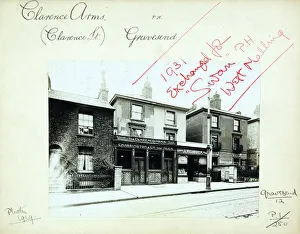 Clarence Arms. P.H.
(Clarence St) Gravesend
1931
Exchanged for
"Swan" P.H
West Malling
Photo
1924
Gravesend
12
P.H
250